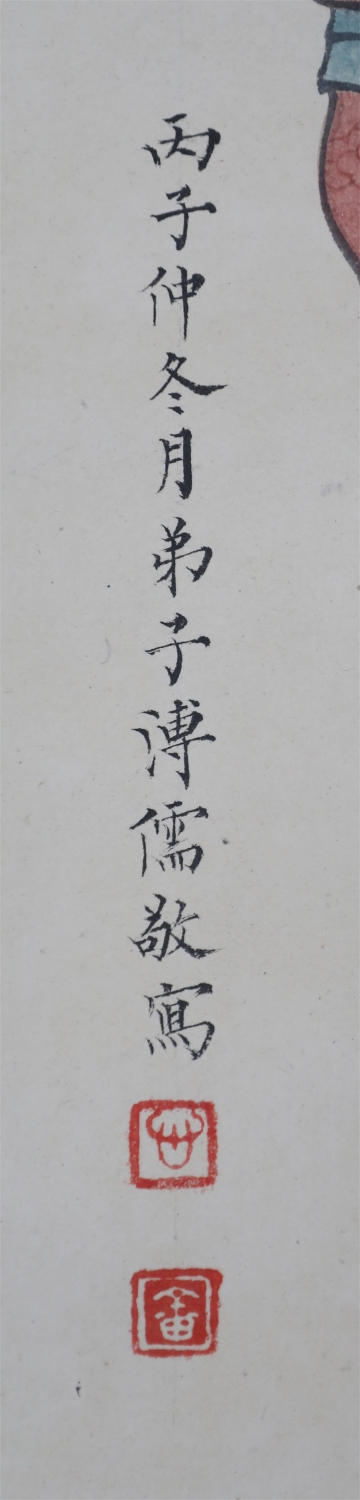 丙子仲冬月弟子溥儒敬寫